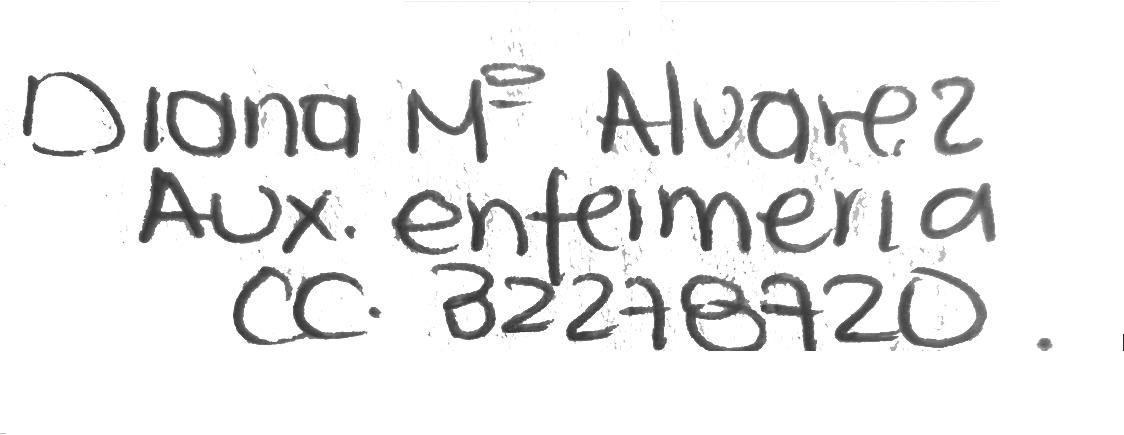 Diana Mª Alvarez
Aux. enfermeria
CC. 32278720